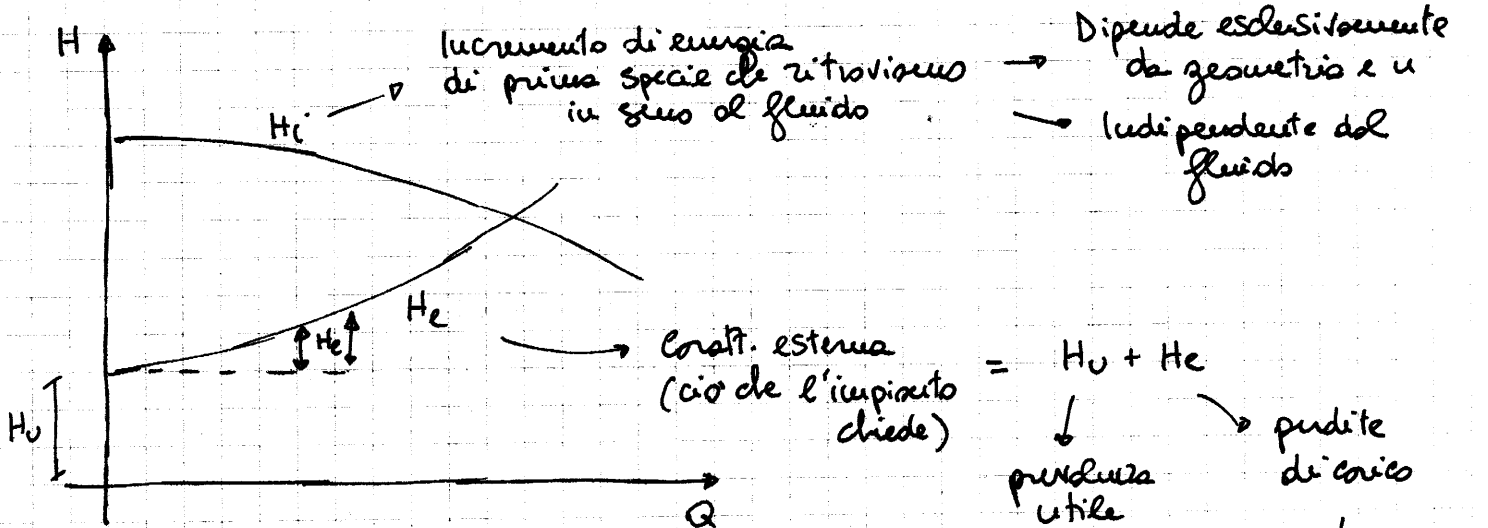 H
Incremento di energia
di prima specie che ritroviamo
in seno al fluido
Dipende esclusivamente
da geometria e u
Indipendente dal
fluido
Hi
He
He
Hu
Caratt. esterna
(ciò che l'impianto
chiede)
= Hu + He
prevalenza
utile
perdite
di carico
Q